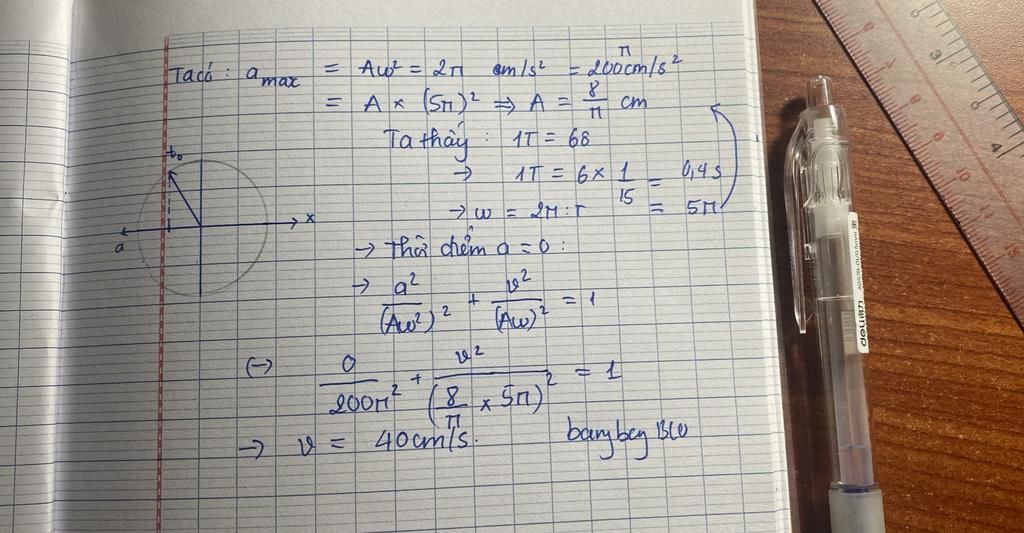 Ta có : a max = Aω² = 2π m/s² = 200π cm/s²
= A × (5π)² ⇒ A = 8/π cm
Ta thấy : 1T = 6δ
→ 1T = 6 × 1/15 = 0,4 s
→ ω = 2π : T = 5π
→ Thời điểm a = 0 :
→ a²/(Aω²)² + v²/(Aω)² = 1
(→) 0/200π² + v²/(8/π × 5π)² = 1
→ v = 40cm/s.
t₀
x
a
deli得力
4
3